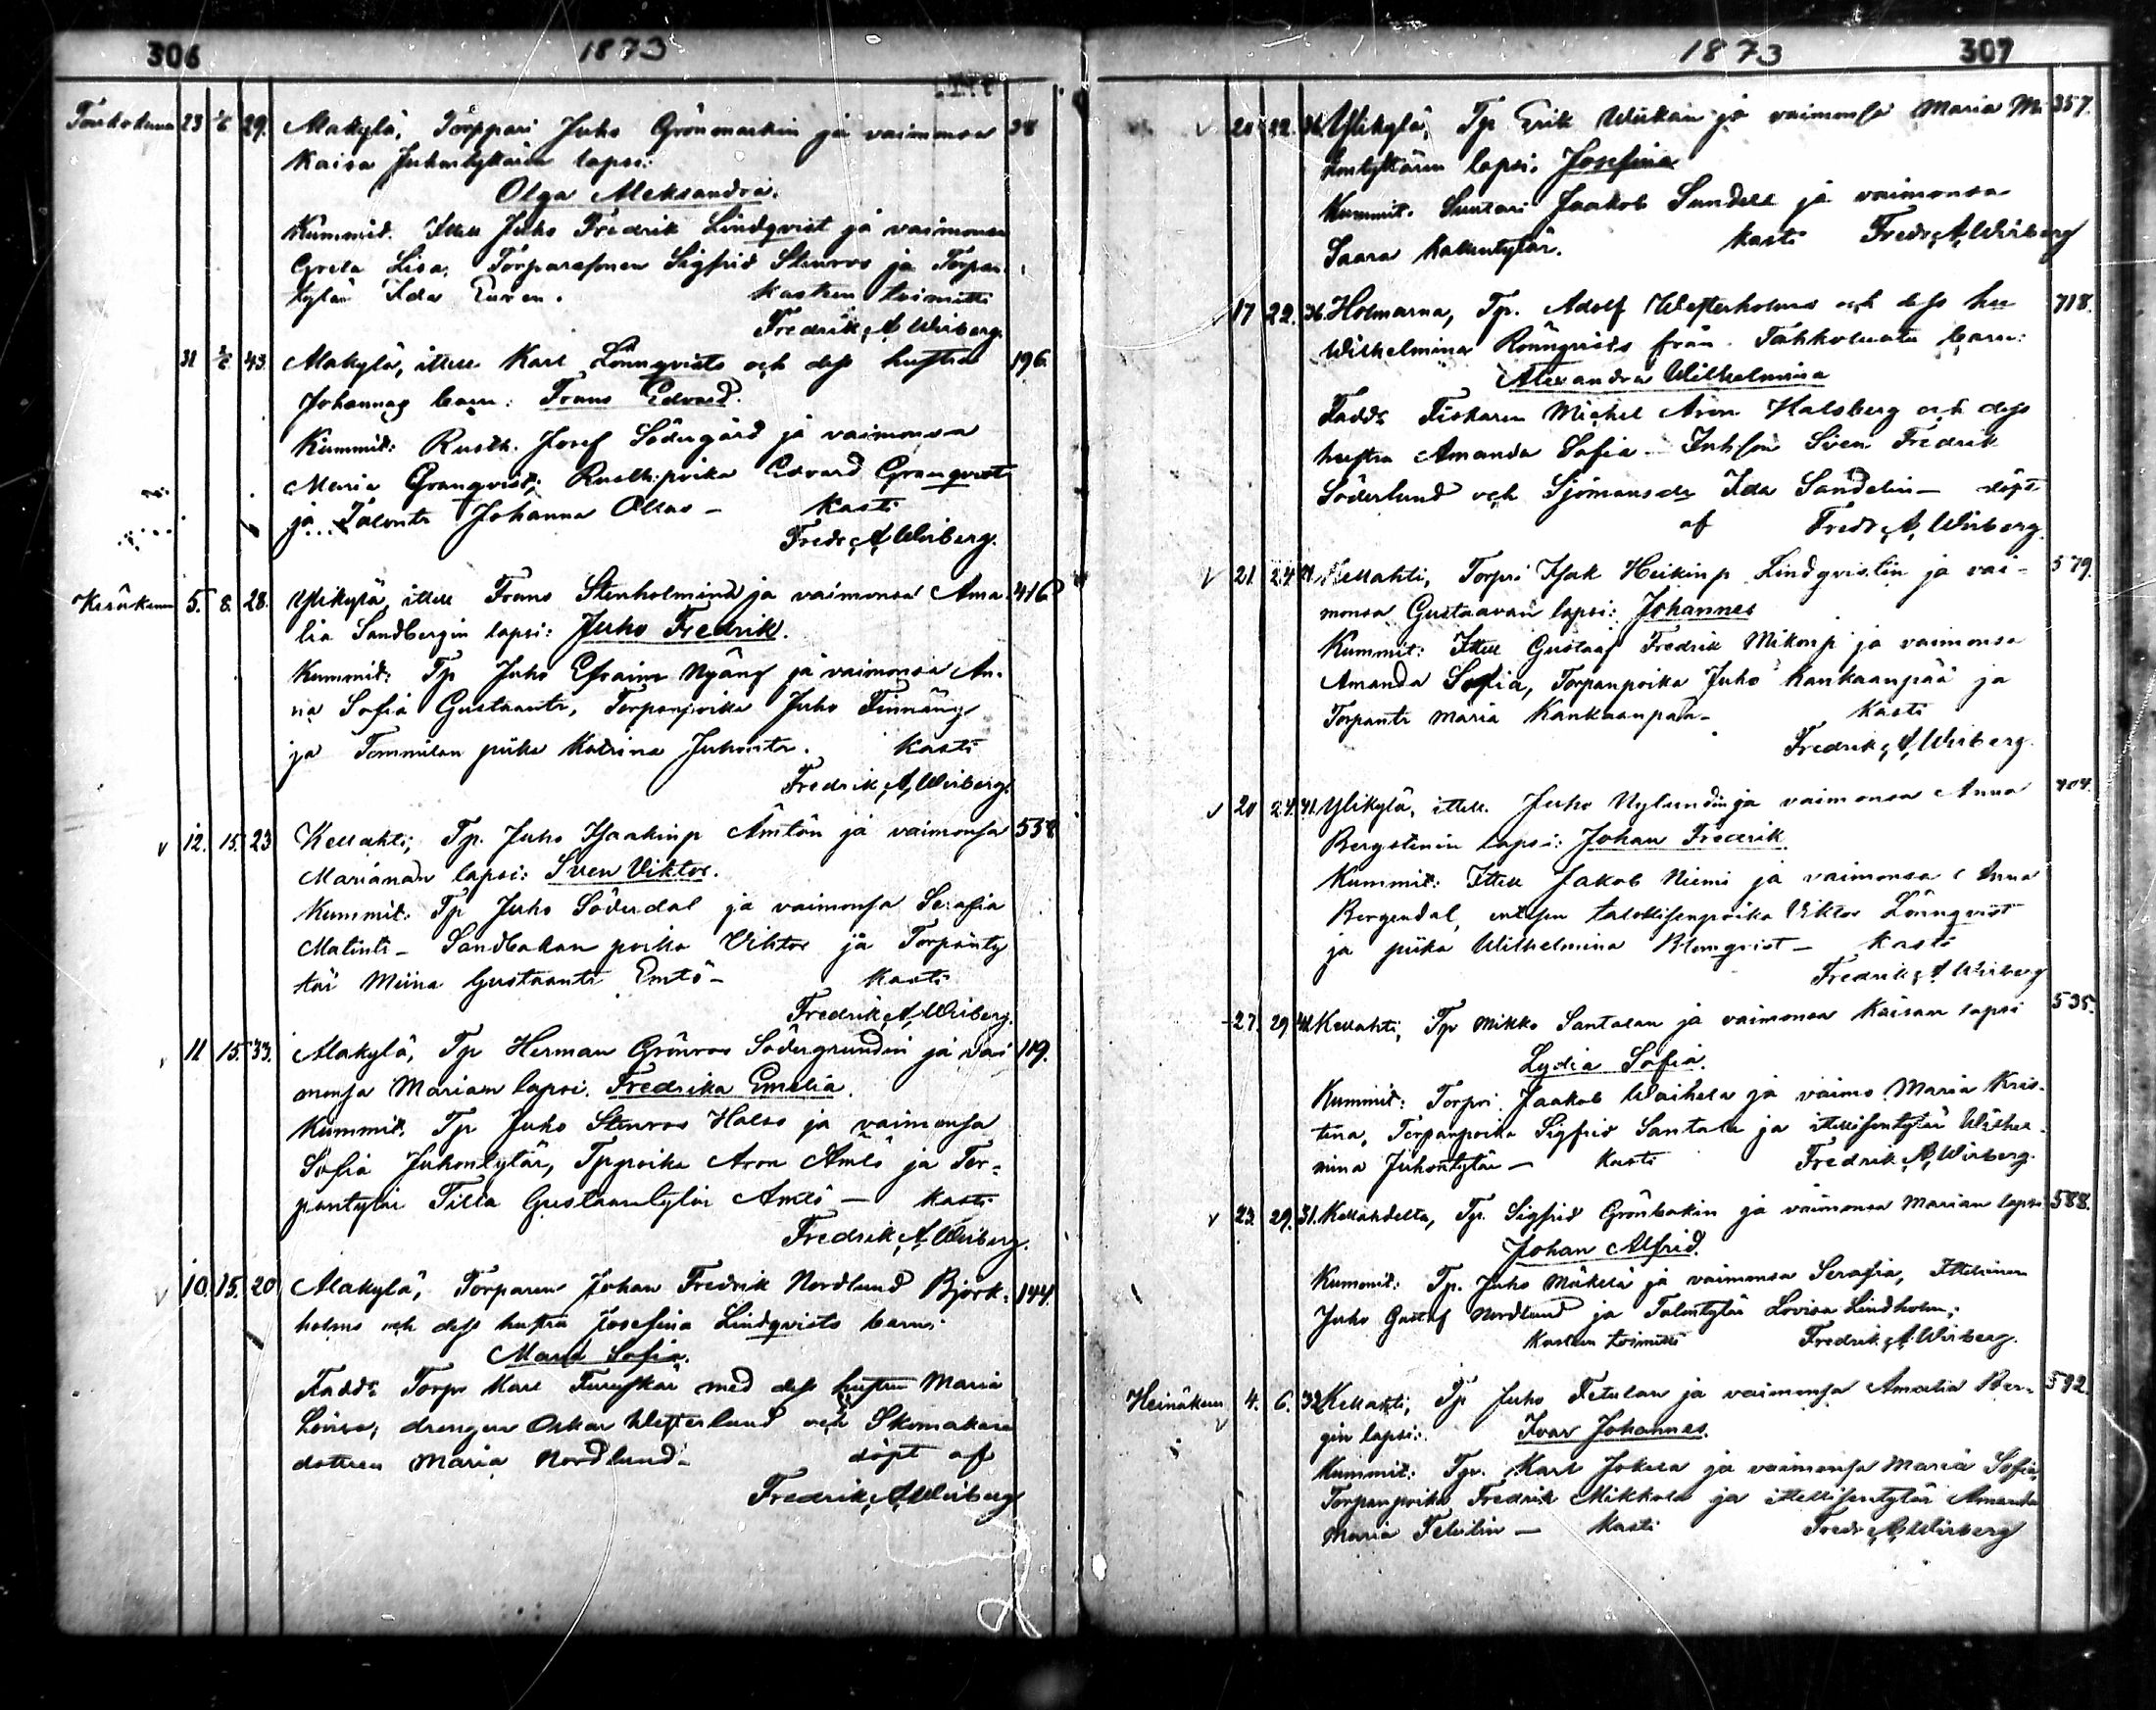 306 1873
Toukokuu 23 1/6 29. Alakylä, Torppari Juho Grönmarkin ja vaimonsa 38
Kaisa Juhontyttären lapsi:
Olga Aleksandra.
Kummid. Ittell Juho Fredrik Lindqvist ja vaimonsa
Greta Lisa, Torparesonen Sigfrid Stenros ja Torpan
tytär Ida Euren. Kasteen toimitti
Fredrik A Wirberg.
31 2/6 43. Alakylä, ittell Karl Lönnqvists och dess hustru 196.
Johannas barn: Frans Edvard.
Kummit: Rusth. Josef Södergård ja vaimonsa
Maria Granqvist; Rusth:poika Edvard Granqvist
ja Talontr Johanna Ollas – Kasti
Fredr. A Wirberg.
Kesäkuu 5. 8. 28. Ylikylä, ittell Frans Stenholmin ja vaimonsa Ama- 416
lia Sandbergin lapsi: Juho Fredrik.
Kummit: Tp Juho Efraim Nyäng ja vaimonsa An-
na Sofia Gustaantr, Torpanpoika Juho Finnäng
ja Tommilan piika Katrina Juhontr. Kasti
Fredrik A Wirberg.
v 12. 15. 23 Kellahti, Tp. Juho Isaakinp Ämtön ja vaimonsa 558
Marianan lapsi: Sven Viktor.
Kummit: Tp Juho Söderdal ja vaimonsa Serafia
Matintr – Sandbakan poika Viktor ja Torpanty
tär Miina Gustaantr Emtö – Kasti
Fredrik A Wirberg.
11 15. 33. Alakylä, Tp Herman Grönroos Södergrundin ja vai 119.
monsa Marian lapsi. Fredrika Emelia.
Kummit. Tp Juho Stenros Halso ja vaimonsa
Sofia Juhontytär, Tp.poika Aron Ämtö ja Tor-
pantytär Tilla Gustaantytär Ämtö – Kasti
Fredrik A Wirberg.
v 10. 15. 20 Alakylä, Torparen Johan Fredrik Nordlund Björk- 144.
holms och dess hustru Josefina Lindqvists barn:
Maria Sofia.
Fadd: Torp. Karl Furuskär med dess hustru Maria
Lovisa, drengen Oskar Westerlund och Skomakare
dottren Maria Nordlund – döpt af
Fredrik A Wirberg
1873 307
v 20 22. 36. Ylikylä, Tp Erik Wiikan ja vaimonsa Maria Mi 357.
kontyttären lapsi. Josefina
Kummit. Suutari Jaakob Sundell ja vaimonsa
Saara Kallentytär. Kasti Fredr A Wirberg
17 22. 36. Holmarna, Tp. Adolf Westerholms och dess hu 718.
Wilhelmina Rönnqvists från Tahkoluoto barn:
Alexandra Wilhelmina
Fadd: Fiskaren Michel Aron Halsberg och dess
hustru Amanda Sofia – Inh.son Sven Fredrik
Söderlund och Sjömansdr Ida Sandelin – döpt
af Fredr A Wirberg.
v 21. 24 41. Kellahti, Torpri Isak Heikinp Lindqvistin ja vai- 579.
monsa Gustaavan lapsi: Johannes
Kummit: Ittell Gustaaf Fredrik Mikonp ja vaimonsa
Amanda Sofia, Torpanpoika Juho Kankaanpää ja
Torpantr Maria Kankaanpää – Kasti
Fredrik A Wirberg.
v 20 24. 41. Ylikylä, ittell. Juho Nylundin ja vaimonsa Anna 404.
Bergstenin lapsi: Johan Fredrik.
Kummit: Ittell Jakob Niemi ja vaimonsa Anna
Bergendal, talollisenpoika Viktor Lönnqvist
ja piika Wilhelmina Blomqvist – Kasti
Fredrik A Wirberg
27. 29 41. Kellahti, Tp Mikko Santalan ja vaimonsa Kaisan lapsi 535.
Lydia Sofia.
Kummit: Torpri Jaakob Waihela ja vaimo Maria Kris-
tina, Torpanpoika Sigfrid Santala ja ittellisentytär Wilhel-
mina Juhontytär – Kasti Fredrik A Wirberg.
v 23. 29. 31. Kellahdelta, Tp. Sigfrid Grönbakin ja vaimonsa Marian lapsi 588.
Johan Alfrid.
Kummit: Tp. Juho Mäkelä ja vaimonsa Serafia, Ittellinen
Juho Gustaf Nordlund ja Talontytär Lovisa Lindholm;
Kasteen toimitti Fredrik A Wirberg.
Heinäkuu v 4. 6. 32 Kellahti, Tp Juho Fetulan ja vaimonsa Amalia Ber- 592.
gin lapsi: Ivar Johannes.
Kummit: Tp. Karl Jokela ja vaimonsa Maria Sofia,
Torpanpoika Fredrik Mikkola ja ittellisentytär Amanda
Maria – Kasti Fredr A Wirberg